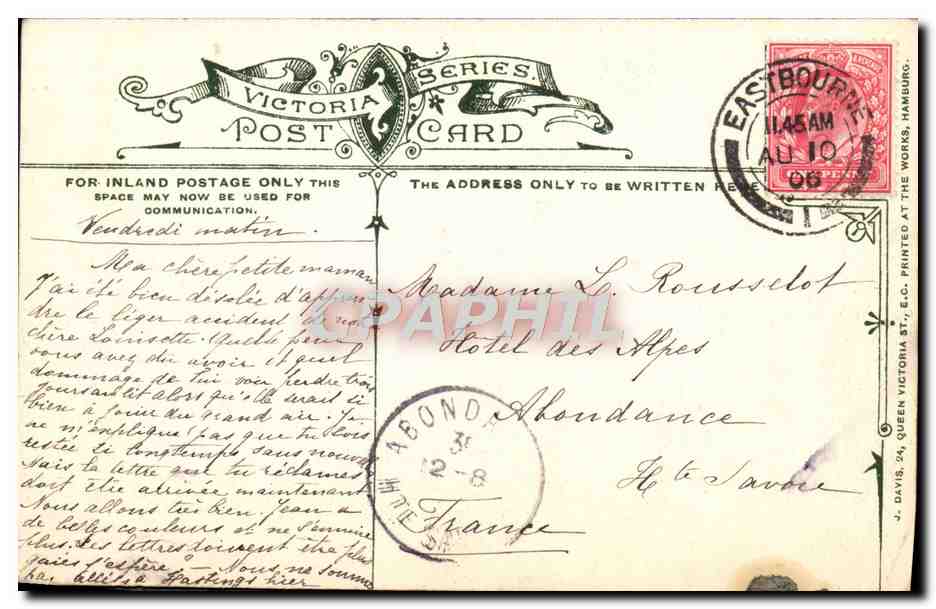 VICTORIA SERIES.
POST CARD
FOR INLAND POSTAGE ONLY THIS
SPACE MAY NOW BE USED FOR
COMMUNICATION.
THE ADDRESS ONLY TO BE WRITTEN HERE
EASTBOURNE
11.45AM
AU 10
06
1
Vendredi matin.
Ma chère petite maman
J'ai été bien désolée d'appren
dre le léger accident de
chère Loinsette. Quelle peur
vous avez du avoir et quel
dommage de lui voir perdre trois
jours au lit alors qu'elle serait si
bien à jouir du grand air. Je
ne m'explique pas que tu sois
restée si longtemps sans nouvelles
Mais la lettre que tu réclames
doit être arrivée maintenant
Nous allons très bien. Jean a
de belles couleurs et ne s'ennuie
plus. Ses lettres doivent être plus
gaies j'espère. - Nous ne sommes
pas allés à Hastings hier
Madame L. Rousselot
Hôtel des Alpes
Abondance
Hte Savoie
France
ABONDA
12-8
HUTE
CPAPHIL
J. DAVIS, 24, QUEEN VICTORIA ST., E.C. PRINTED AT THE WORKS, HAMBURG.